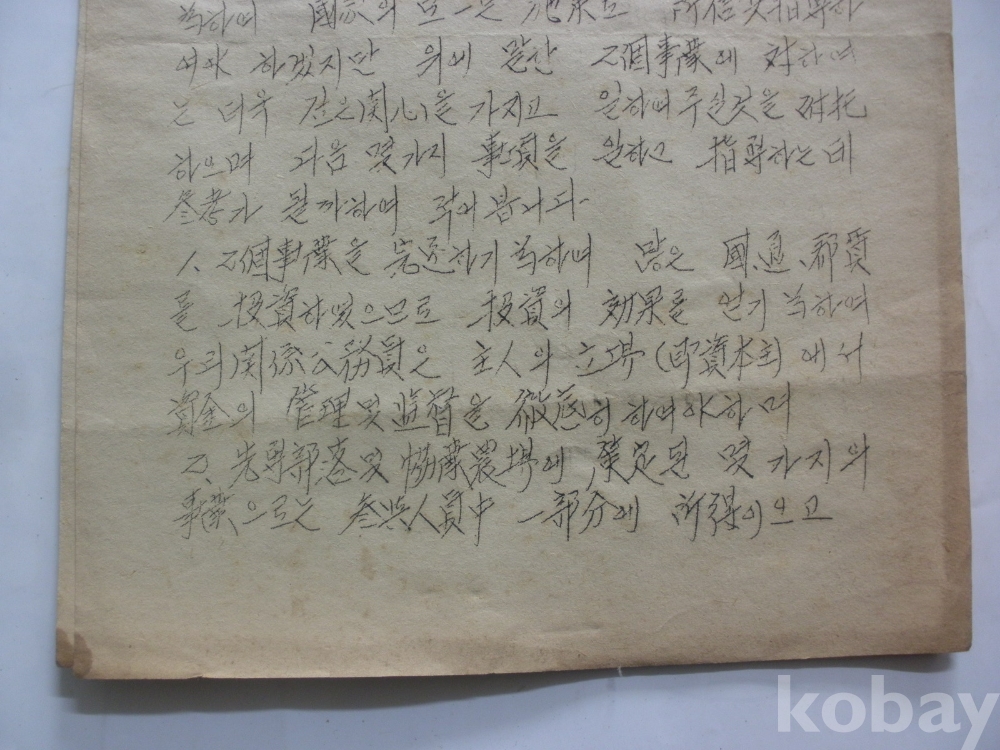 하여 國家의
여야 하겠지만 위에 말한 2個事業에 対하여
는 더욱 깊은 関心을 가지고 일하여주실것을 付託
하으며 다음 몇가지 事項을 일하고 指導하는데
参考가 될까하여 적어봅니다.
1. 2個事業을 完遂하기 위하여 많은 國, 道, 郡費
를 投資하였으므로 投資의 効果를 얻기 위하여
우리 関係公務員은 主人의 立場(即資本主)에서
資金의 管理 및 監督을 徹底히 하여야하며
2. 先導部落 및 協業農場에 策定된 몇가지의
事業으로는 参与人員中 一部分에 所得이오고
kobay